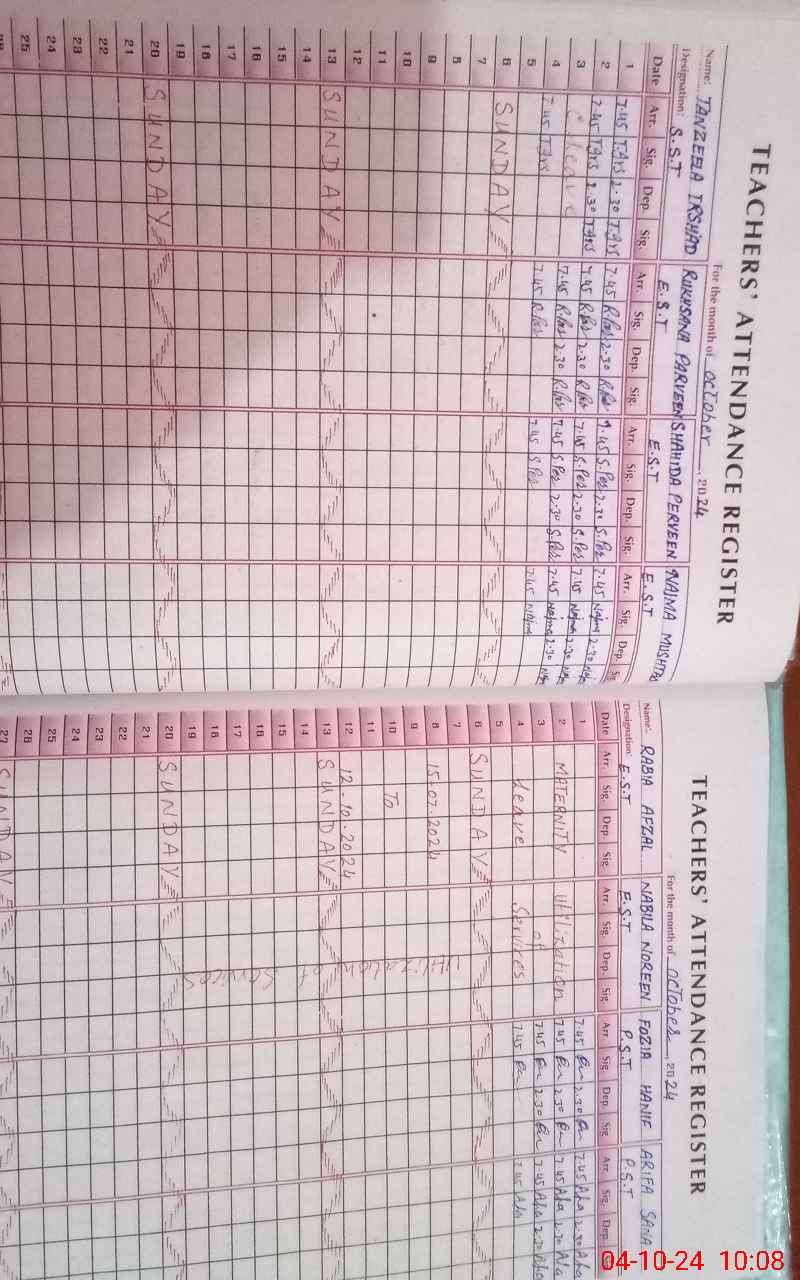 TEACHERS' ATTENDANCE REGISTER
For the month of October, 2024
Name: TANZEELA IRSHAD RUKHSANA PARVEEN SHAHIDA PERVEEN NAJMA MUSHTA
Designation: S.S.T E.S.T E.S.T E.S.T
Date Arr. Sig. Dep. Sig. Arr. Sig. Dep. Sig. Arr. Sig. Dep. Sig. Arr. Sig. Dep. Sig.
1 7.45 T.Ars 2.30 T.Ars 7.45 R.Par 2.30 R.Par 7.45 S.Per 2.30 S.Per 7.45 Najma 2.30
2 7.45 T.Ars 2.30 T.Ars 7.45 R.Par 2.30 R.Par 7.45 S.Per 2.30 S.Per 7.45 Najma 2.30
3 C. Leave 7.45 R.Par 2.30 R.Par 7.45 S.Per 2.30 S.Per 7.45 Najma 2.30
4 7.45 T.Ars 7.45 R.Par 7.45 S.Per 7.45 Najma
5
6 SUNDAY
7
8
9
10
11
12
13 SUNDAY
14
15
16
17
18
19
20 SUNDAY
21
22
23
24
25
TEACHERS' ATTENDANCE REGISTER
For the month of October, 2024
Name: RABIA AFZAL NABILA NOREEN FOZIA HANIF ARIFA SANA
Designation: E.S.T E.S.T P.S.T P.S.T
Date Arr. Sig. Dep. Sig. Arr. Sig. Dep. Sig. Arr. Sig. Dep. Sig. Arr. Sig. Dep. Sig.
1 7.45 2.30 7.45 2.30
2 MATERNITY Utilization 7.45 2.30 7.45 2.30
3 of 7.45 2.30 7.45 2.30
4 Leave Services 7.45 7.45
5
6 SUNDAY
7
8 15.07.2024
9
10 To
11
12 12.10.2024
13 SUNDAY
14
15
16
17
18
19
20 SUNDAY
21
22
23
24
25
26
27 SUNDAY
Utilization of Services
04-10-24 10:08